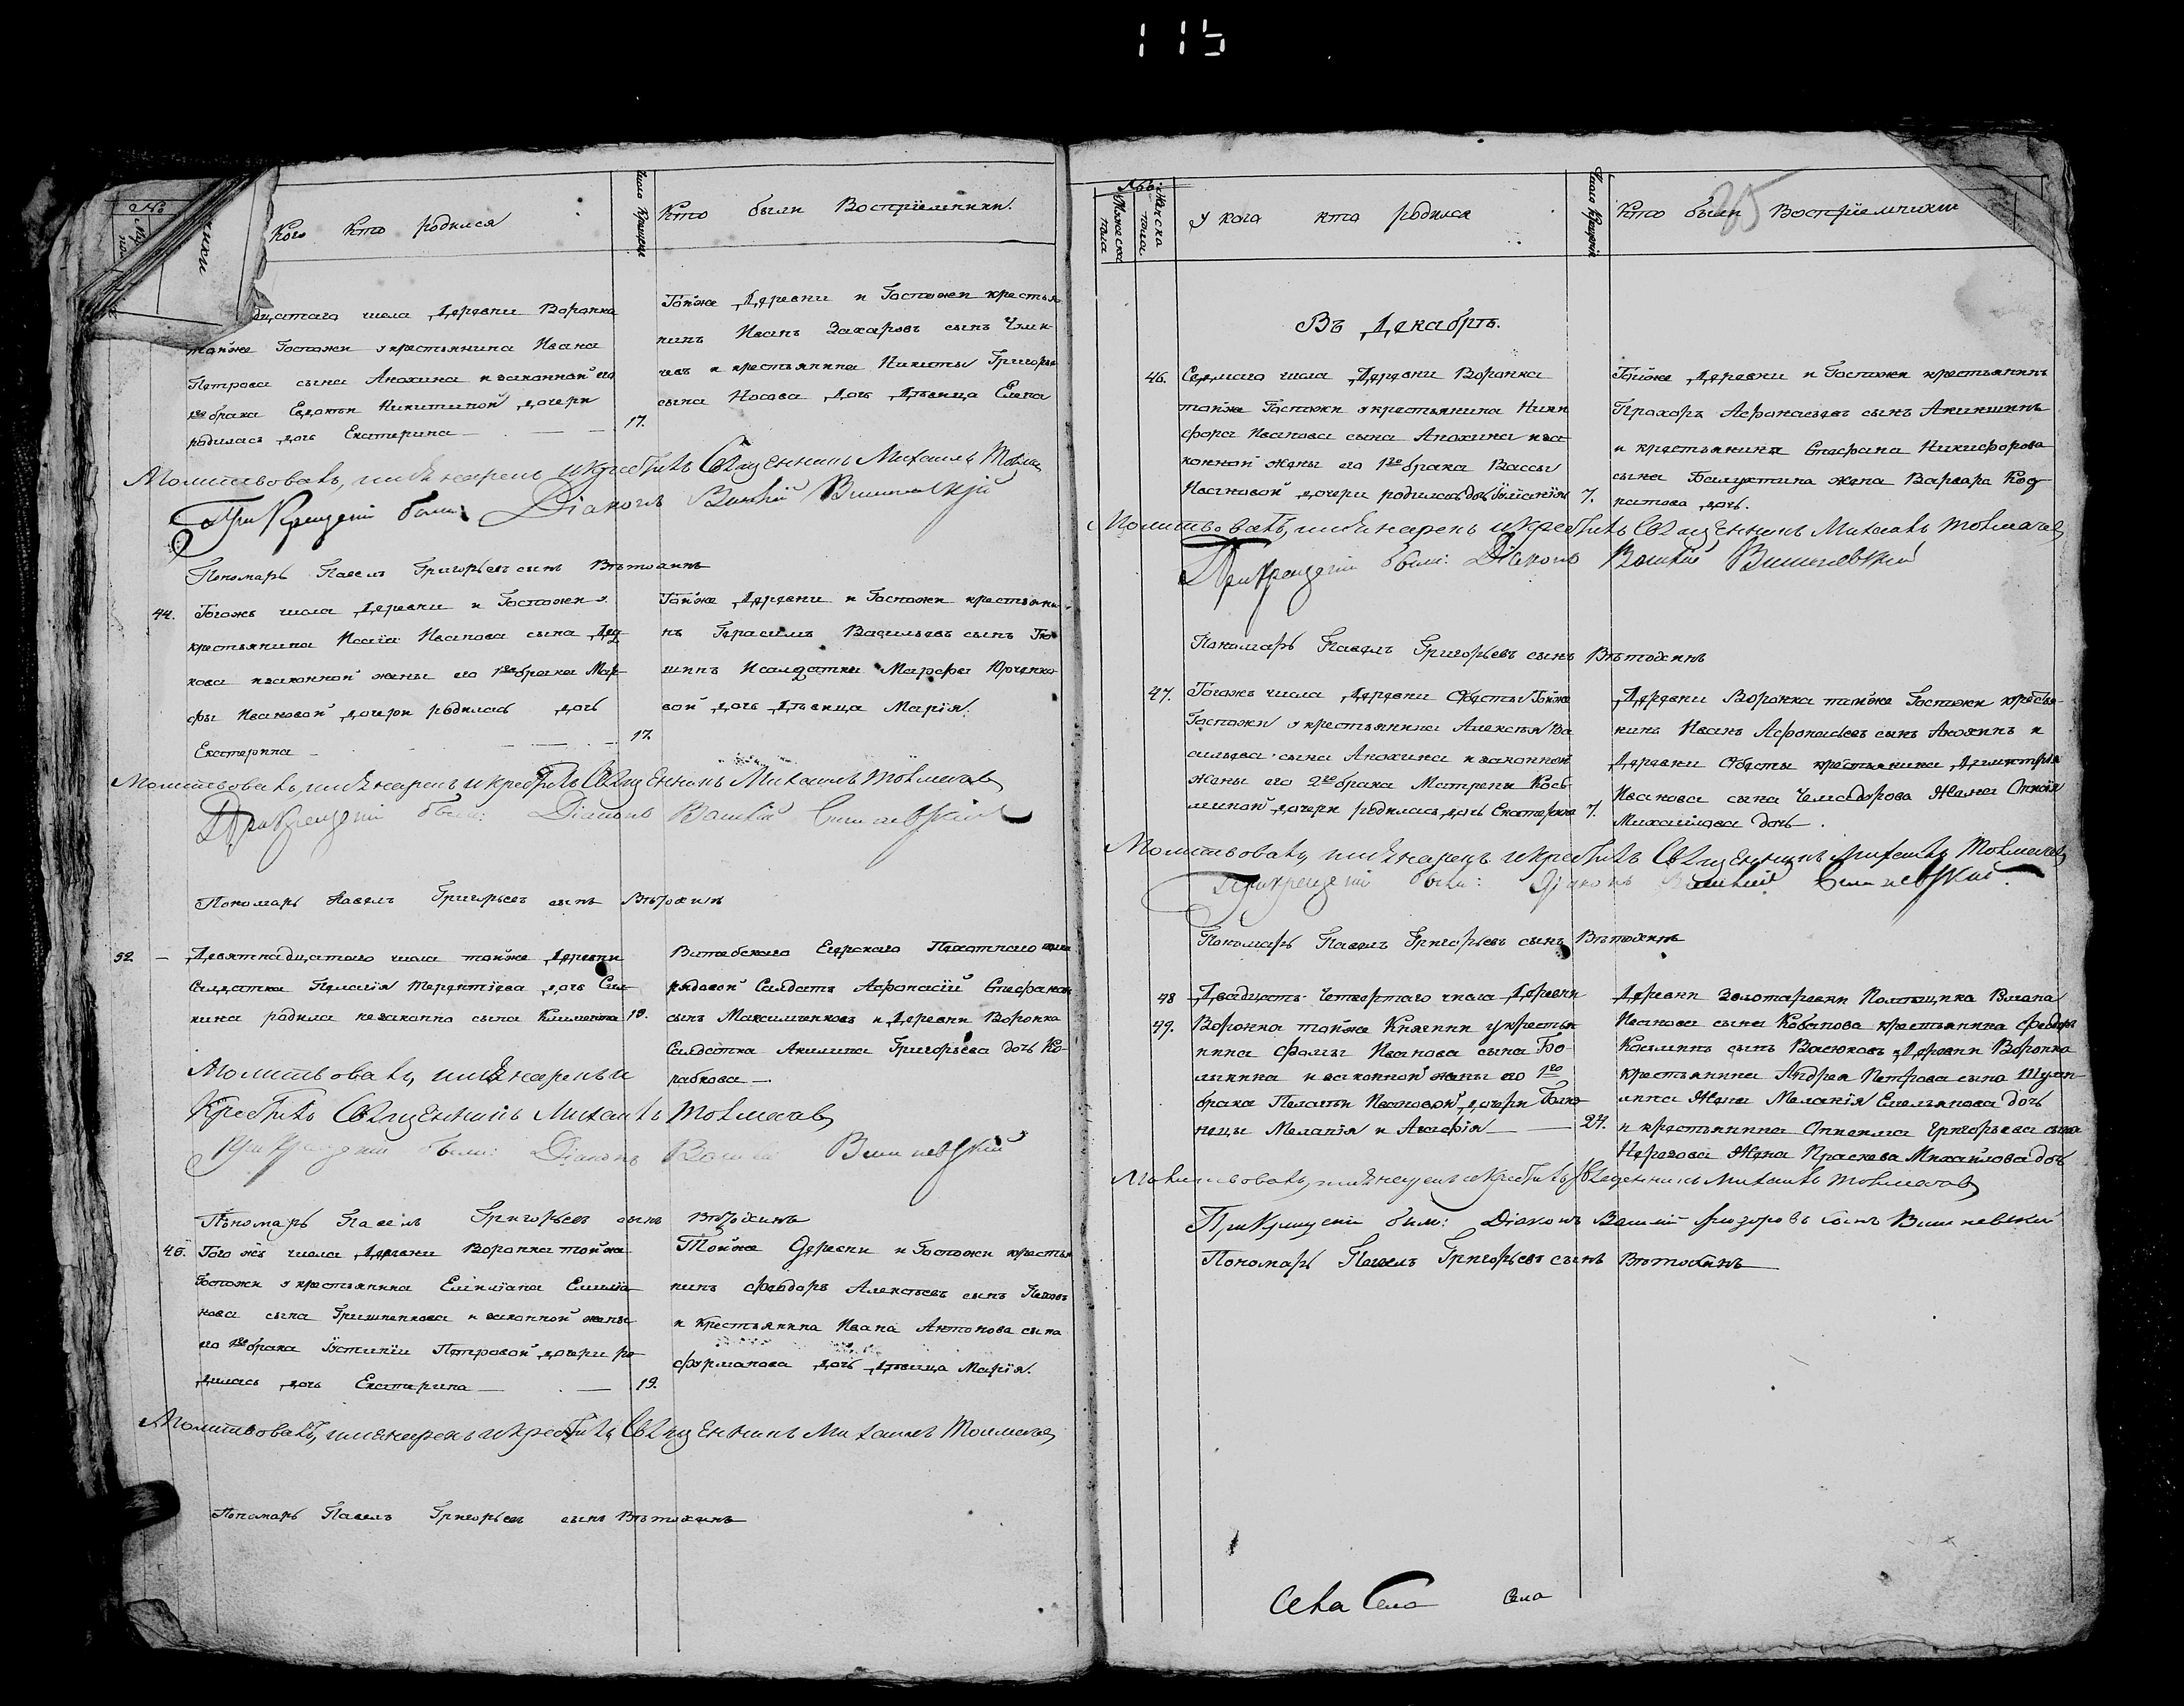 115
№
Кого кто родился
Число Крещенія
Кто были Воспріемники.
дцатаго числа Деревни Воронка
тойже Госпожи укрестьянина Ивана
Петрова сына Анохина изаконной его
1го брака Евдокѣи Никитиной дочери
родилась дочь Екатерина
17.
Тойже Деревни и Госпожи крестья
нинъ Иванъ Захаровъ сынъ
и крестьянина Никиты Григорье
сына Носова дочь дѣвица Елена
Молитвовалъ, имя нарекъ икрестилъ Священникъ Михаилъ
При Крещеніи были: Діаконъ Вишневскій
Пономарь Павелъ Григорьевъ сынъ Вѣтохинъ
44. Тогожъ числа Деревни и Госпожи у
крестьянина Исаіи Иванова сына
кова изаконной жены его 1го брака Мар
фы Ивановой дочери родилась дочь
Екатерина
17.
Тойже Деревни и Госпожи крестьяни
нъ Герасимъ Васильевъ сынъ
шинъ исалдатки Марфы Юрченко
вой дочь дѣвица Марія.
Молитвовалъ, имя нарекъ икрестилъ Священникъ Михаилъ Товмачов
При крещеніи были: Діаконъ Вишневскій
Пономарь Павелъ Григорьевъ сынъ Вѣтохинъ
52. Девятнадцатаго числа тойже Деревни
Салдатка Пелагія Терентіева дочь
кина родила незаконно сына Климента 19.
Витебскаго Егерскаго Пехотнаго
рядовой Салдатъ Афонасій Стефанов
сынъ Максименковъ и Деревни Воронка
Салдатка Акилина Григорьева дочь Ко
рабкова
Молитвовалъ, имя нарекъ и
Крестилъ Священникъ Михаилъ Товмачов
При Крещеніи были: Діаконъ Вишневскій
Пономарь Павелъ Григорьевъ сынъ Вѣтохинъ
45. Тогожъ числа Деревни Воронка тойже
Госпожи укрестьянина Емиліана Емиліа
нова сына Гришненкова и законной жены
его 1го брака Іустиніи Петровой дочери ро
дилась дочь Екатерина
19.
Тойже Деревни и Госпожи крестья
нинъ Феодоръ Алексѣевъ сынъ
и Крестьянина Ивана Антонова сына
Фурманова дочь дѣвица Марія.
Молитвовалъ, имя нарекъ икрестилъ Священникъ Михаилъ Товмачов
Пономарь Павелъ Григорьевъ сынъ Вѣтохинъ
№
Мужеска пола
Женска пола
У кого кто родился
Число Крещеній
Кто были Воспріемники
35
Въ Декабрѣ.
46. Седмаго числа Деревни Воронка
тойже Госпожи укрестьянина Ники
фора Иванова сына Анохина иза
конной жены его 1го брака Вассы
Ивановой дочери родилась дочь 7.
Тойже Деревни и Госпожи крестьянинъ
Прохоръ Афонасьевъ сынъ Аникшинъ
и крестьянина Стефана Никифорова
сына Балухтина жена Варвара Код
ратова дочь.
Молитвовалъ, имя нарекъ икрестилъ Священникъ Михаилъ Товмачов
При Крещеніи были: Діаконъ Вишневскій
Пономарь Павелъ Григорьевъ сынъ Вѣтохинъ
47. Тогожъ числа Деревни Обесты Тойже
Госпожи укрестьянина Алексѣя Ва
сильева сына Анохина и законной
жены его 2го брака Матрены Кось
миной дочери родилась дочь Екатерина 7.
Деревни Воронка тойже Госпожи крестья
нинъ Иванъ Афонасьевъ сынъ Анохинъ и
Деревни Обесты крестьянина Димитрія
Иванова сына жена
Михайлова дочь.
Молитвовалъ, имя нарекъ икрестилъ Священникъ Михаилъ Товмачов
При крещеніи были: Діаконъ Вишневскій.
Пономарь Павелъ Григорьевъ сынъ Вѣтохинъ
48 Двадцать Четвертаго числа Деревни
49. Воронка тойже Княгини укрестья
нина Фомы Иванова сына Бо
лыкина и законной жены его 1го
брака Пелагѣи Ивановой дочери Близ
нецы Меланія и Агафія 24.
Деревни Золотаревки Помѣщика Власа
Иванова сына Кобанова крестьянина Феодоръ
Косминъ сынъ Васюковъ, Деревни Воронка
крестьянина Андрея Петрова сына
жена Меланія Емельянова дочь
и крестьянина Григорьева сына
жена Праскева Михайлова дочь
Молитвовалъ, имя нарекъ икрестилъ Священникъ Михаилъ Товмачов
При Крещеніи были: Діаконъ сынъ Вишневскій
Пономарь Павелъ Григорьевъ сынъ Вѣтохинъ
Села